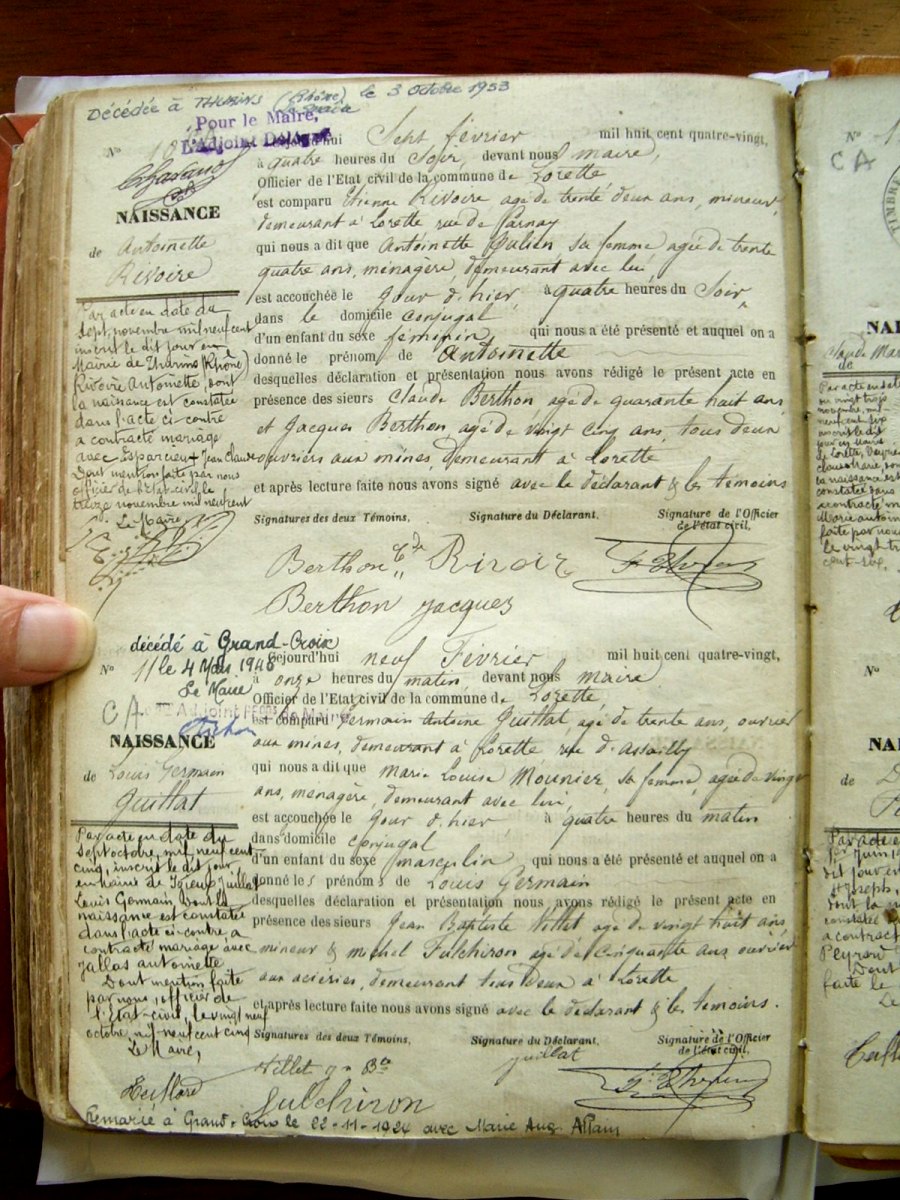 Décédée à Thurins (Rhône) le 3 Octobre 1953
Le Maire
Pour le Maire,
L'Adjoint Délégué
No 10
NAISSANCE
de Antoinette
Rivoire
Par acte en date du
sept, novembre mil neuf cent
inscrit le dit jour en
Mairie de Thurins (Rhône)
Rivoire Antoinette, dont
la naissance est constatée
dans l'acte ci-contre
a contracté mariage
avec Esparcieux Jean Claude
Dont mention faite par nous
officier de l'état-civil le
treize novembre mil neuf cent
Le Maire
Cejourd'hui Sept février mil huit cent quatre-vingt,
à quatre heures du Soir, devant nous maire,
Officier de l'Etat civil de la commune de Lorette
est comparu Etienne Rivoire agé de trente deux ans, mineur,
demeurant à Lorette rue de
qui nous a dit que Antoinette Julien sa femme agée de trente
quatre ans, ménagère, demeurant avec lui,
est accouchée le jour d'hier, à quatre heures du Soir,
dans le domicile conjugal
d'un enfant du sexe féminin qui nous a été présenté et auquel on a
donné le prénom de Antoinette
desquelles déclaration et présentation nous avons rédigé le présent acte en
présence des sieurs Claude Berthon agé de quarante huit ans
et Jacques Berthon agé de vingt cinq ans, tous deux
ouvriers aux mines, demeurant à Lorette
et après lecture faite nous avons signé avec le déclarant & les témoins
Signatures des deux Témoins, Signature du Déclarant, Signature de l'Officier
de l'état civil,
Berthon Cde Rivoir
Berthon Jacques
décédé à Grand-Croix
No 11 le 4 Mars 1946
Le Maire
CA
Adjoint
NAISSANCE
de Louis Germain
Juillat
Par acte en date du
sept octobre, mil neuf cent
cinq, inscrit le dit jour
en mairie de Juillat
Louis Germain dont la
naissance est constatée
dans l'acte ci-contre, a
contracté mariage avec
Jallas antoinette
Dont mention faite
par nous, officier de
l'Etat-civil, le vingt neuf
octobre mil neuf cent cinq
Le Maire,
Cejourd'hui neuf Février mil huit cent quatre-vingt,
à onze heures du matin devant nous maire
Officier de l'Etat civil de la commune de Lorette
est comparu Germain Antoine Juillat, agé de trente ans, ouvrier
aux mines, demeurant à Lorette rue d'assailly
qui nous a dit que Marie Louise Mounier, sa femme, agée de vingt
ans, menagère, demeurant avec lui,
est accouchée le jour d'hier à quatre heures du matin
dans domicile conjugal
d'un enfant du sexe masculin qui nous a été présenté et auquel on a
donné les prénoms de Louis Germain
desquelles déclaration et présentation nous avons rédigé le présent acte en
présence des sieurs Jean Baptiste Villet agé de vingt huit ans
mineur & michel Fulchiron agé de cinquante ans ouvrier
aux aciéries, demeurant tous deux à Lorette
et après lecture faite nous avons signé avec le déclarant & les témoins.
Signatures des deux Témoins, Signature du Déclarant, Signature de l'Officier
de l'état civil,
Villet Bte juillat
fulchiron
Remarié à Grand-Croix le 22-11-1924 avec Marie Aug.
No
CA
TIMBRE
NAI
Claude Mar
de
Par acte en date
du vingt trois
novembre, mil
neuf cent six
inscrit le dit
jour en Mairie
de Lorette
No
NAI
de
Par acte e
1er Juin, 1
dit jour e
St Joseph,
dont la n
constatée
a contract
Peyron
Dont
faite le
Le